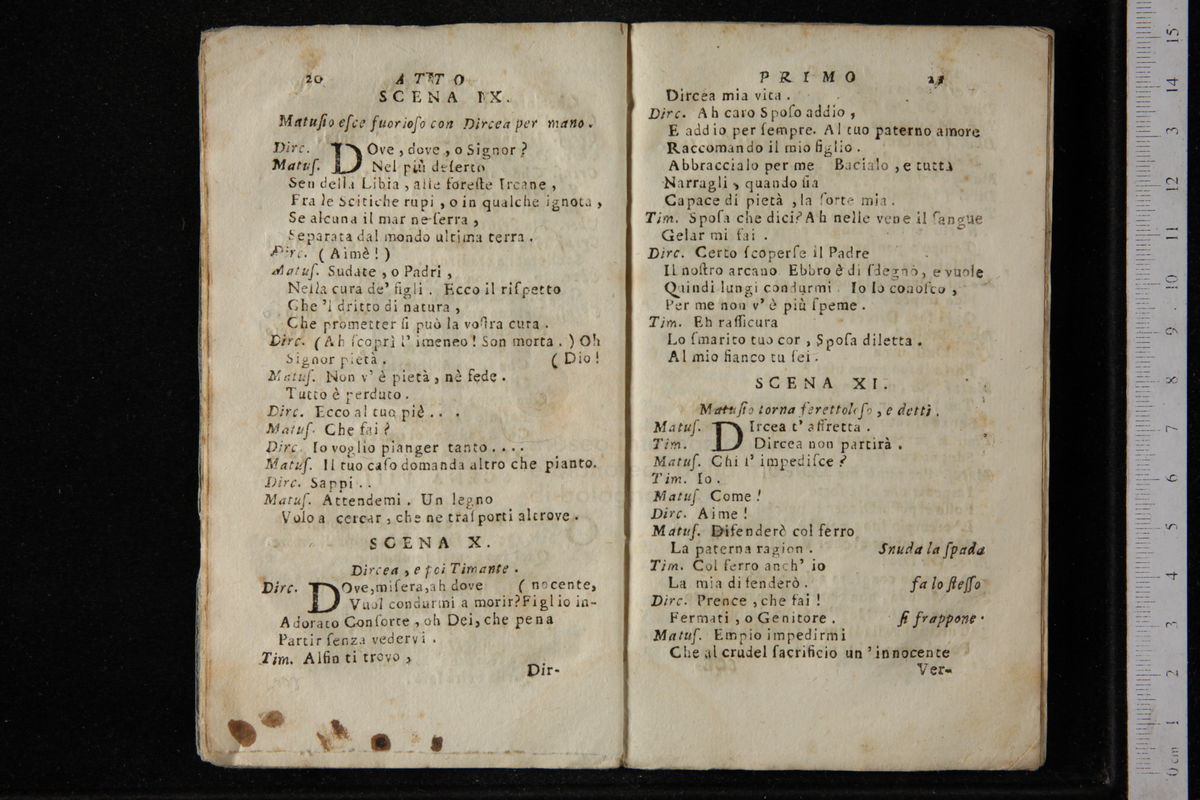 20 ATTO
SCENA IX.
Matusio esce fuorioso con Dircea per mano.
Dirc. DOve, dove, o Signor?
Matuſ. Nel più deſerto
Sen della Libia, alle foreſte Ircane,
Fra le Scitiche rupi, o in qualche ignota,
Se alcuna il mar ne ſerra,
Separata dal mondo ultima terra.
Dirc. (Aimè!)
Matuſ. Sudate, o Padri,
Nella cura de' figli. Ecco il riſpetto
Che 'l dritto di natura,
Che prometter ſi può la voſtra cura.
Dirc. (Ah ſcoprì l' imeneo! Son morta.) Oh
Signor pietà. (Dio!
Matuſ. Non v' è pietà, nè fede.
Tutto è perduto.
Dirc. Ecco al tuo piè . . .
Matuſ. Che fai?
Dirc. Io voglio pianger tanto . . . .
Matuſ. Il tuo caſo domanda altro che pianto.
Dirc. Sappi . .
Matuſ. Attendemi. Un legno
Volo a cercar, che ne traſporti altrove.
SCENA X.
Dircea, e poi Timante.
Dirc. DOve, miſera, ah dove (nocente,
Vuol condurmi a morir? Figlio in-
Adorato Conſorte, oh Dei, che pena
Partir ſenza vedervi.
Tim. Alfin ti trovo,
Dir-
PRIMO 21
Dircea mia vita.
Dirc. Ah caro Spoſo addio,
E addio per ſempre. Al tuo paterno amore
Raccomando il mio figlio.
Abbraccialo per me Bacialo, e tutta
Narragli, quando ſia
Capace di pietà, la ſorte mia.
Tim. Spoſa che dici? Ah nelle vene il ſangue
Gelar mi fai.
Dirc. Certo ſcoperſe il Padre
Il noſtro arcano Ebbro è di ſdegno, e vuole
Quindi lungi condurmi. Io lo conoſco,
Per me non v' è più ſpeme.
Tim. Eh raſſicura
Lo ſmarito tuo cor, Spoſa diletta.
Al mio fianco tu ſei.
SCENA XI.
Matuſio torna ferettoloſo, e detti.
Matuſ. DIrcea t' affretta.
Tim. Dircea non partirà.
Matuſ. Chi l' impediſce?
Tim. Io.
Matuſ Come!
Dirc. Aime!
Matuſ. Difenderò col ferro
La paterna ragion. Snuda la ſpada
Tim. Col ferro anch' io
La mia difenderò. fa lo ſteſſo
Dirc. Prence, che fai!
Fermati, o Genitore. ſi frappone.
Matuſ. Empio impedirmi
Che al crudel ſacrificio un 'innocente
Ver-